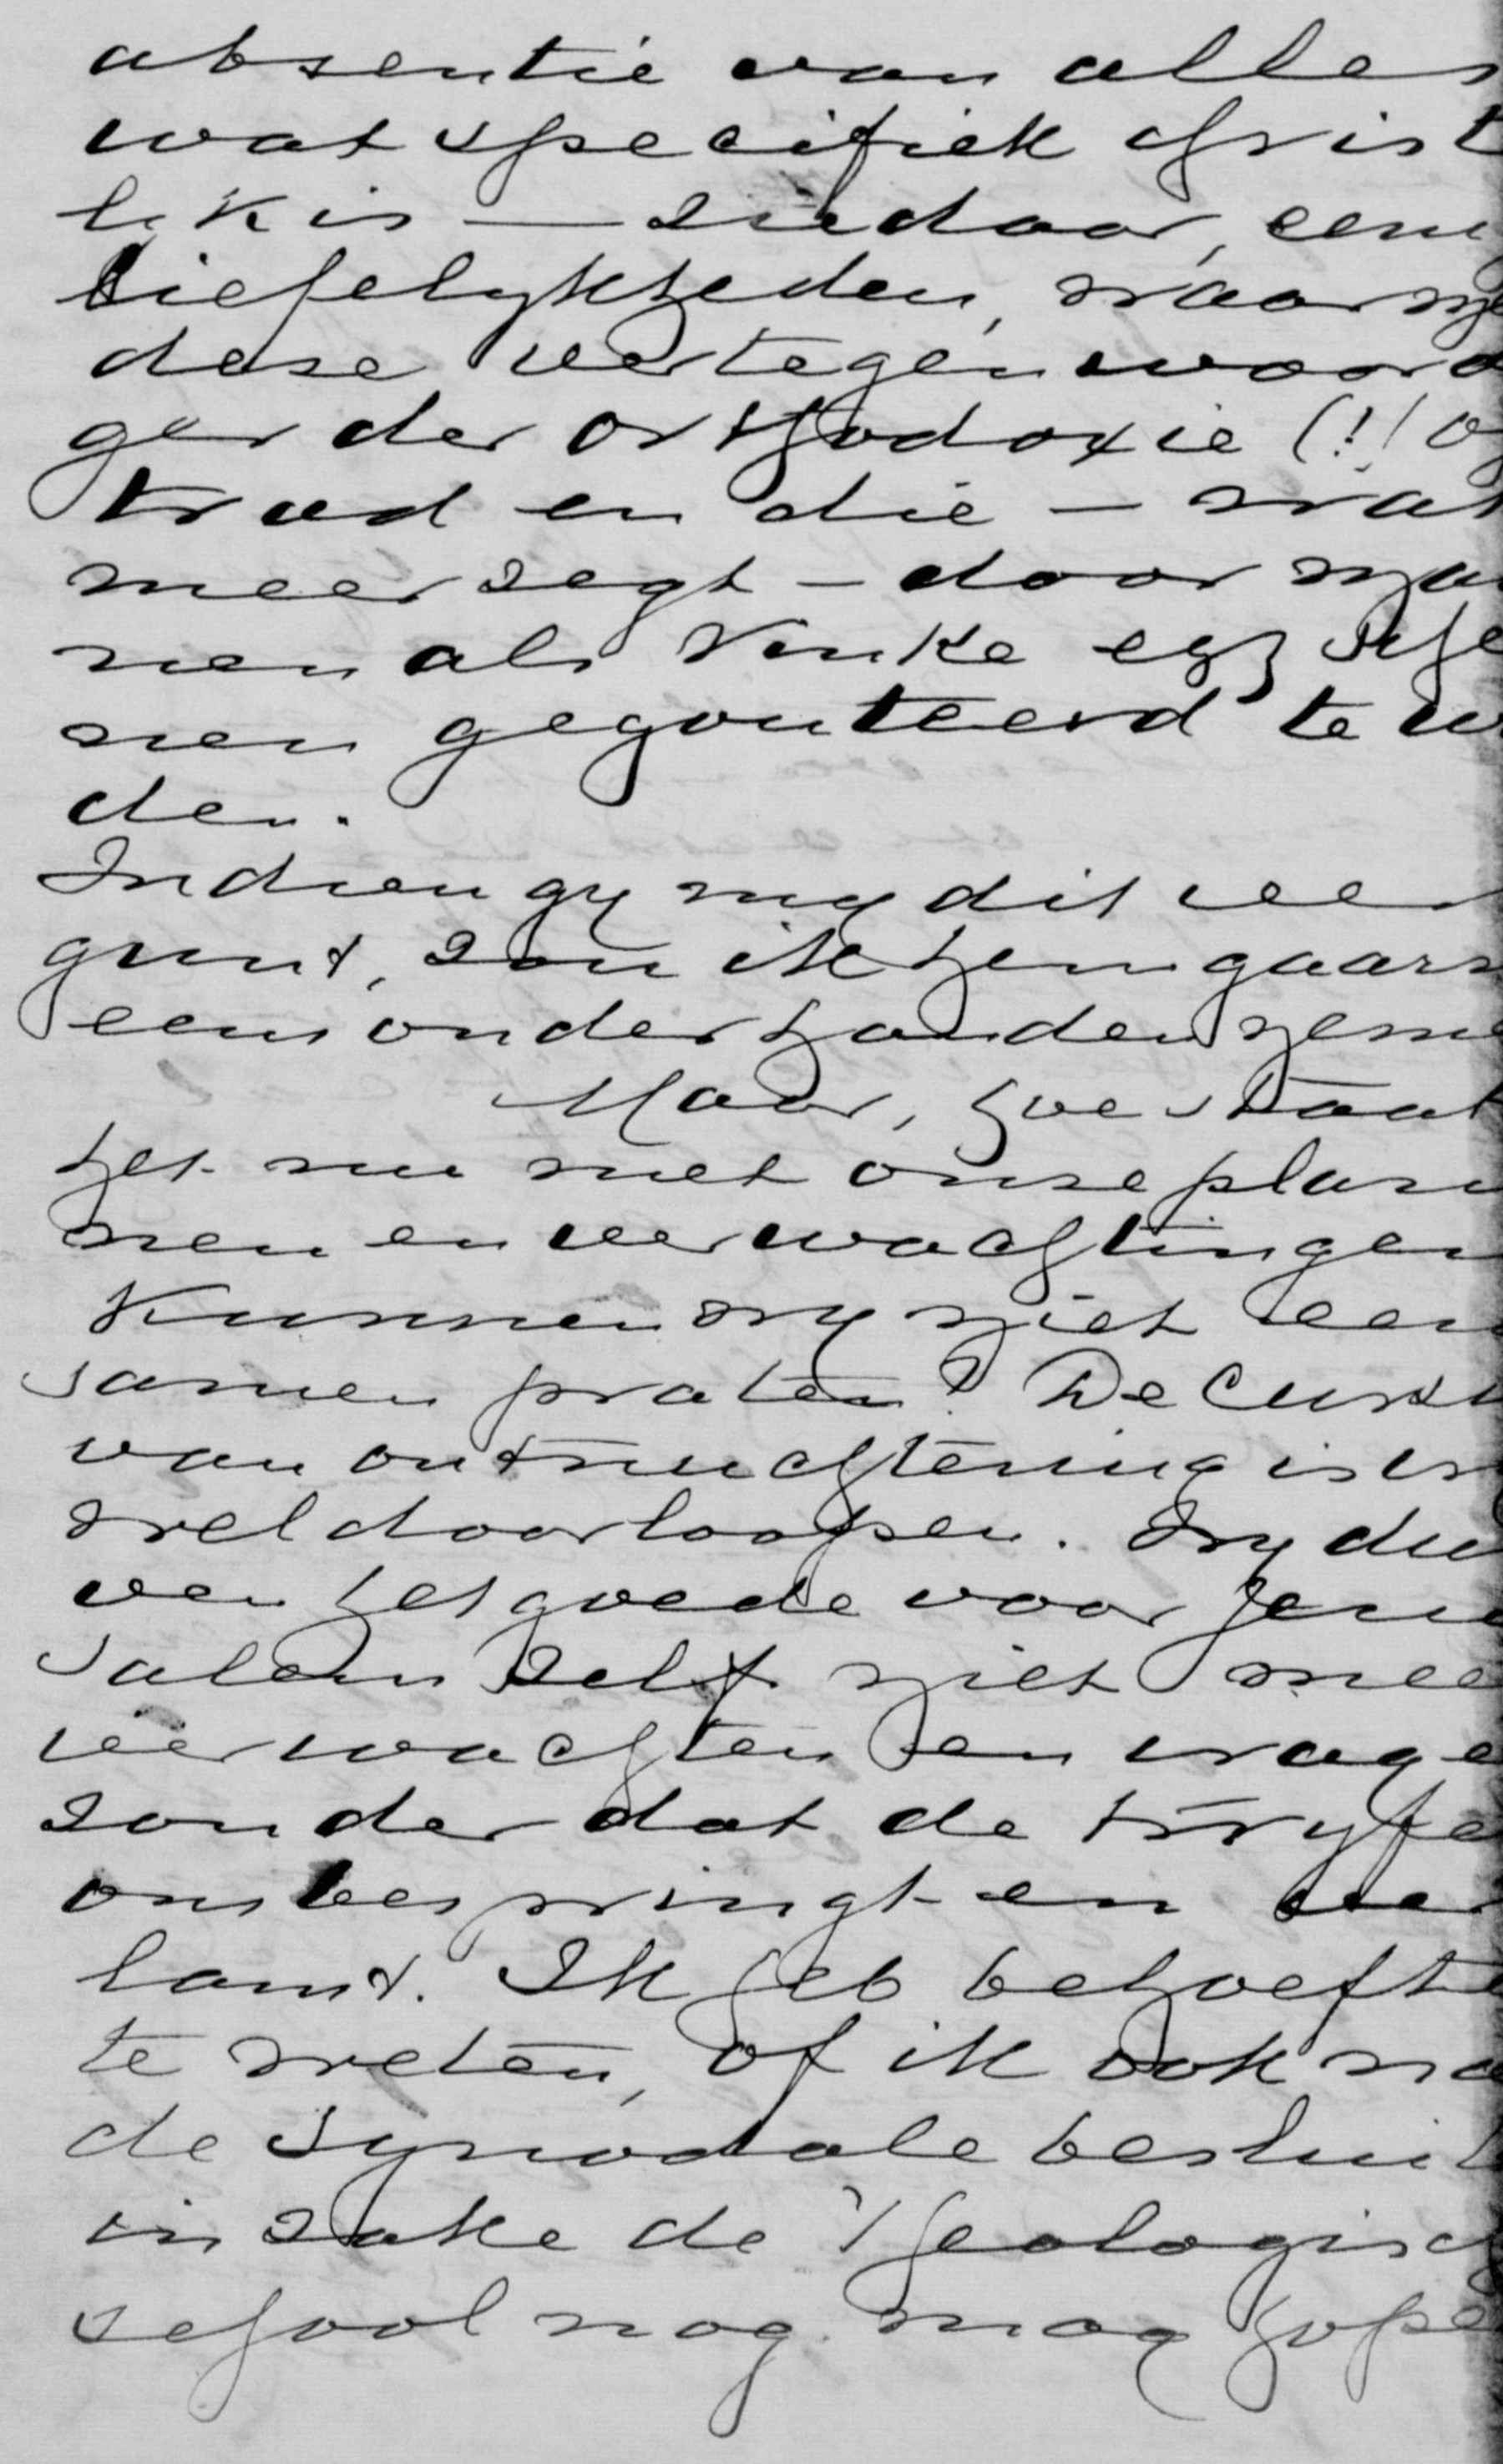 absentie van alles
wat specifiek christ
lyk is — ziedaar, eenig
liefelykheden, waarme
deze vertegenwoord
ger der orthodoxie (!) op
trad en die — wat
meer zegt — door man
nen als Vinke
nen gegouteerd te w
den.
Indien gy my dit ver
gunt, zou ik hem gaarn
eens onderhanden neme
Maar, hoe staat
het nu met onze plan
nen en verwachtingen
Kunnen wy niet eens
samen praten? De Cursu
van ontnuchtering is
wel doorloopen. Wy dur
ven het goede voor Jeru
salem zelf niet mee
verwachten en vrage
zonder dat de twyfel
ons bespringt en ver
lamt. Ik heb behoefte
te weten, of ik ook na
de Synodale besluit
in zake de Theologisch
school nog mag hope